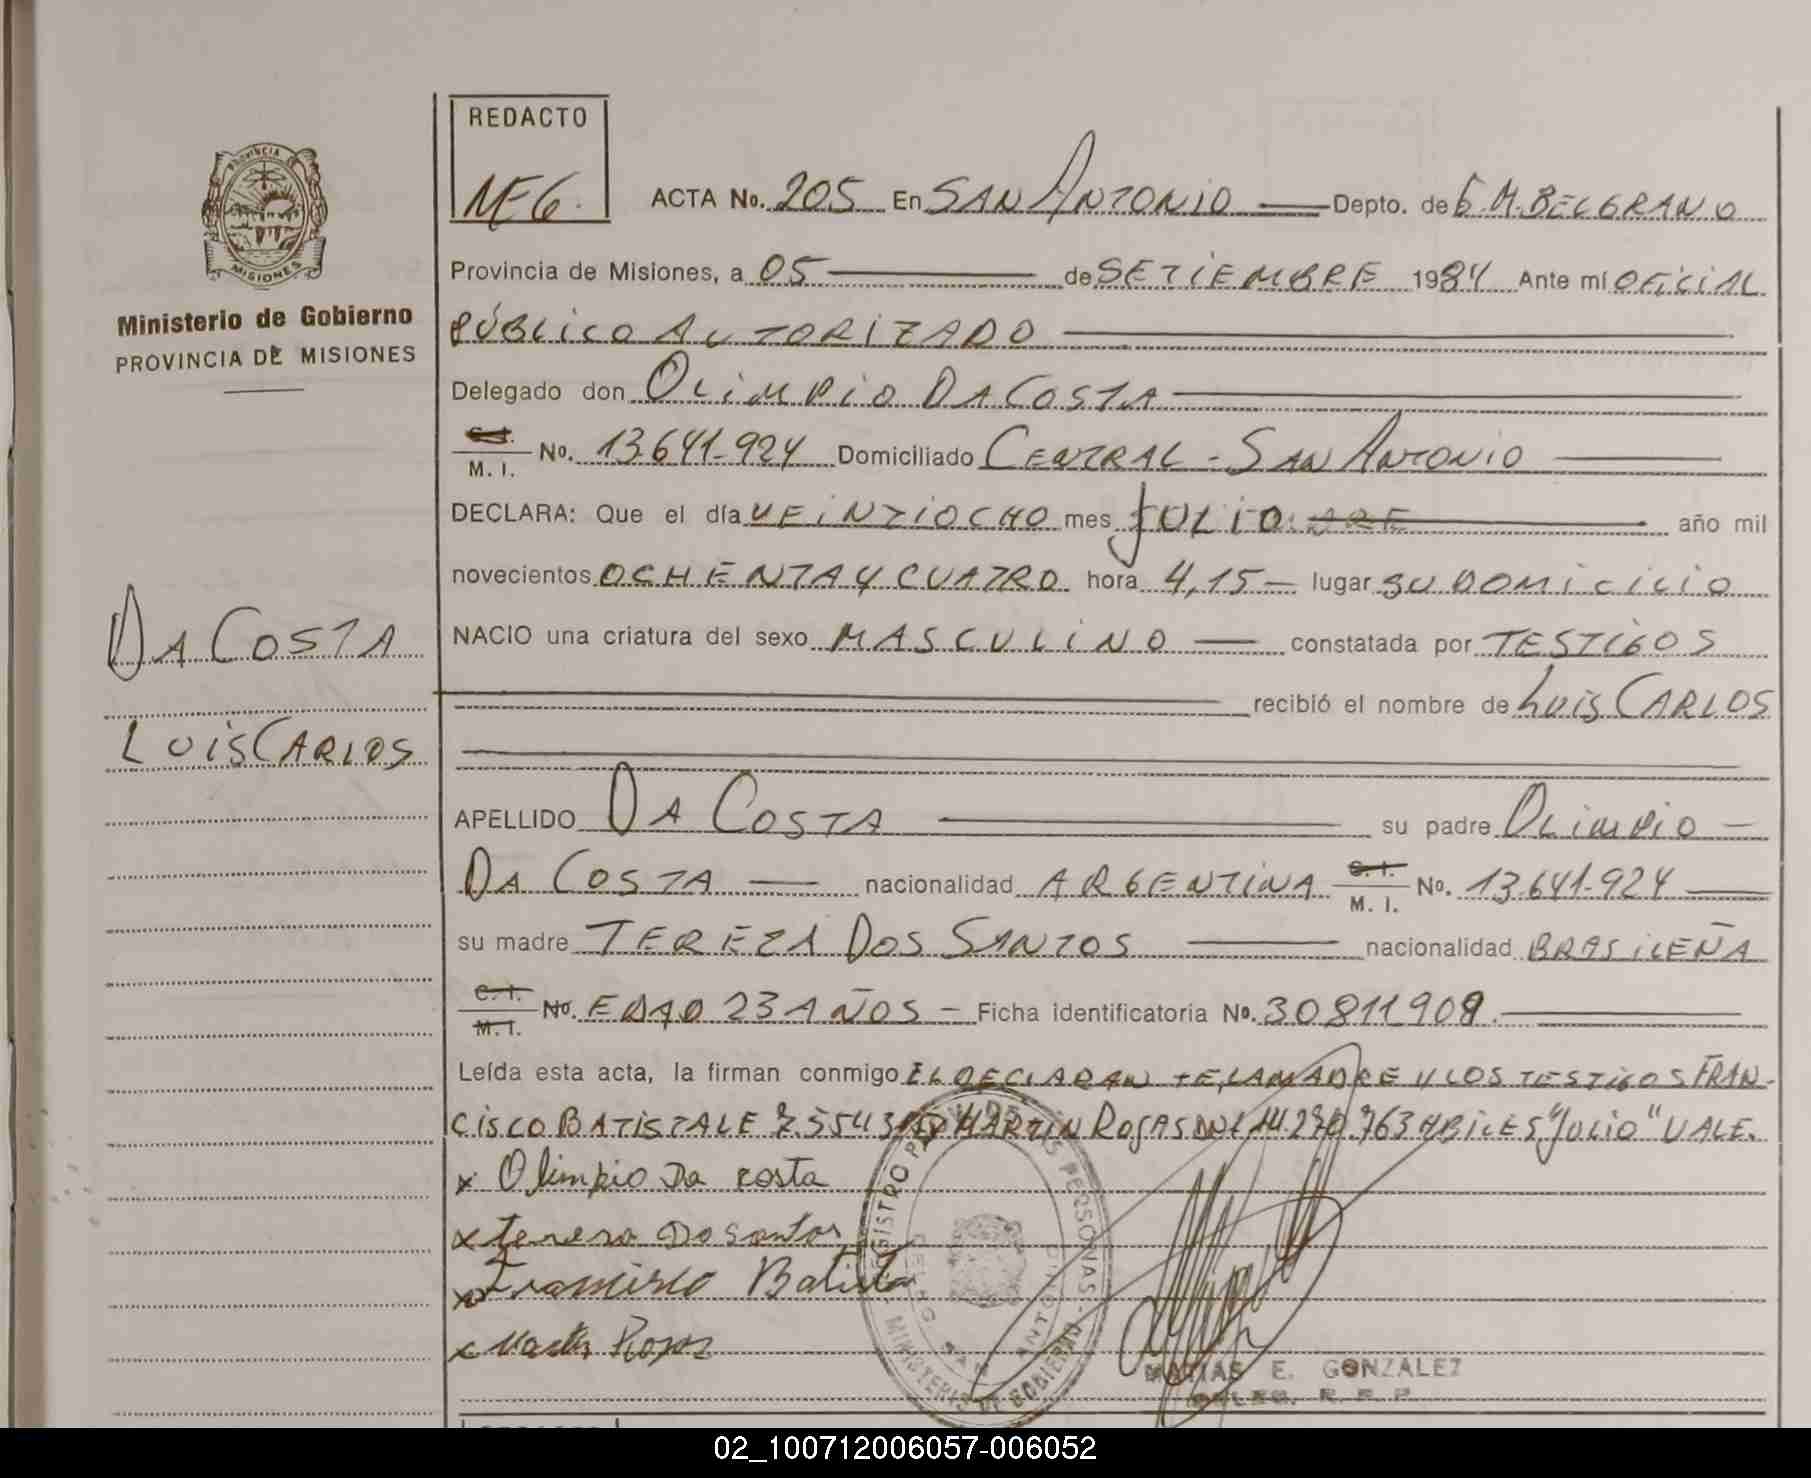 REDACTO
MEG.
ACTA No. 205 En SAN ANTONIO Depto. de G.M.BELGRANO
PROVINCIA DE MISIONES
Provincia de Misiones, a 05 de SETIEMBRE 1984 Ante mí OFICIAL
Ministerio de Gobierno
PÚBLICO AUTORIZADO
PROVINCIA DE MISIONES
Delegado don OLIMPIO DA COSTA
C.I. M. I. No. 13.641.924 Domiciliado CENTRAL - SAN ANTONIO
DECLARA: Que el día VEINTIOCHO mes JULIO año mil
novecientos OCHENTA Y CUATRO hora 4,15 lugar SU DOMICILIO
DA COSTA
NACIO una criatura del sexo MASCULINO constatada por TESTIGOS
recibió el nombre de LUIS CARLOS
LUIS CARLOS
APELLIDO DA COSTA su padre OLIMPIO
DA COSTA nacionalidad ARGENTINA C.I. M. I. No. 13.641.924
su madre TEREZA DOS SANTOS nacionalidad BRASILEÑA
C.I. M.I. No. EDAD 23 AÑOS - Ficha identificatoria No. 30811909.
Leída esta acta, la firman conmigo EL DECLARANTE, LA MADRE Y LOS TESTIGOS FRAN-
CISCO BATISTA LE 7.5543 MARTIN ROJAS DNI 14.270.763 HBILES "JULIO" VALE.
x Olimpio Da costa
x tereza Dosantos
x Framisco Batista
x Martin Rojas
REGISTRO DE LAS PERSONAS - MINISTERIO DE GOBIERNO
DELEG. SAN ANTONIO
MATIAS E. GONZALEZ
DELEG. R. P. P.
02_100712006057-006052